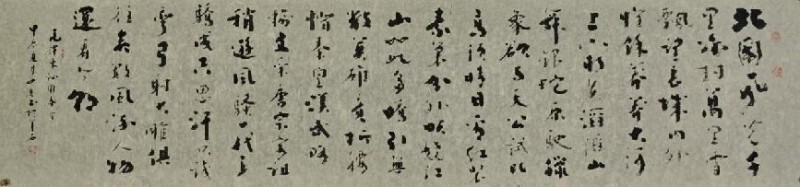 北國風光千
里冰封萬里雪
飄望長城內外
惟餘莽莽大河
上下頓失滔滔山
舞銀蛇原馳蠟
象欲與天公試比
高須晴日看紅裝
素裹分外妖嬈江
山如此多嬌引無
數英雄競折腰
惜秦皇漢武略
輸文采唐宗宋祖
稍遜風騷一代天
驕成吉思汗只識
彎弓射大雕俱
往矣數風流人物
還看今朝
毛澤東沁園春雪